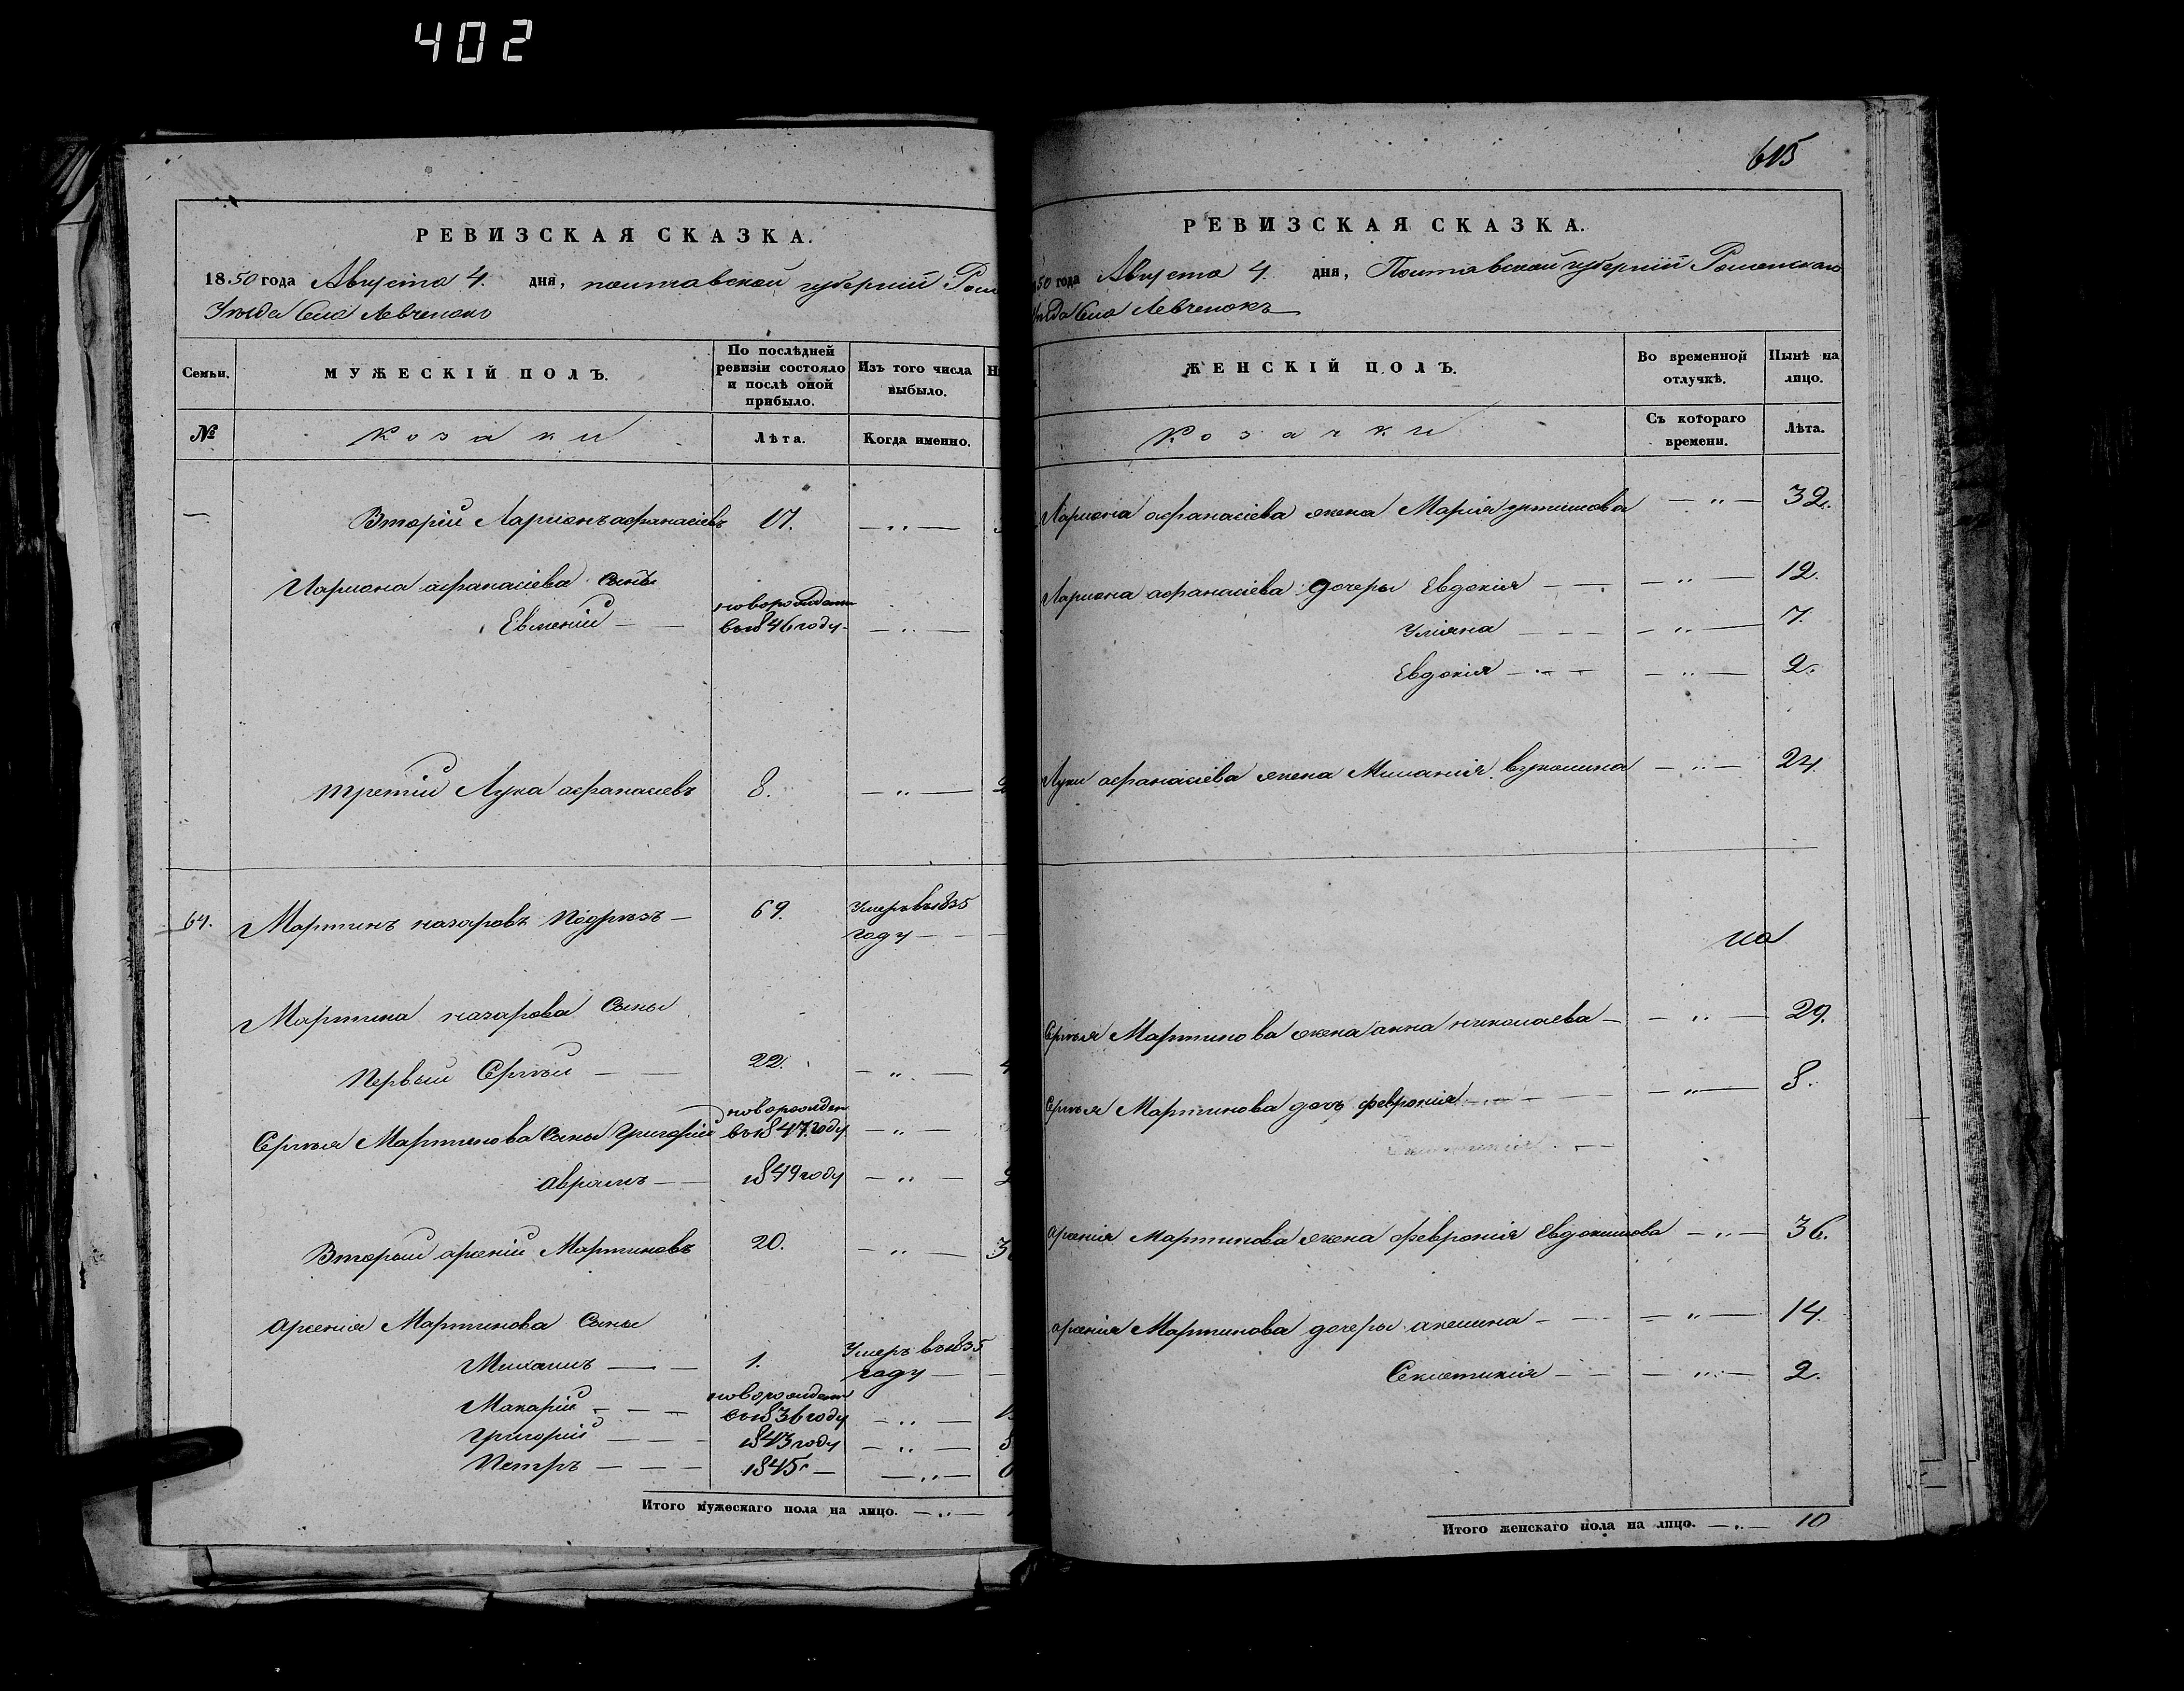 402
РЕВИЗСКАЯ СКАЗКА.
1850 года Августа 4. дня, полтавской губернии Ром
Уѣзда Села Левченокъ
Семьи.
МУЖЕСКІЙ ПОЛЪ.
По послѣдней ревизіи состояло и послѣ оной прибыло.
Изъ того числа выбыло.
№
Козаки
Лѣта.
Когда именно.
Вторій Ларионъ афанасіевъ 17.
Лариона афанасіева сынъ
Евмений новорожден въ 1846 году
третій Лука афанасіевъ 8.
64. Мартинъ назаровъ Подрѣзъ 69. Умеръ въ 1835 году
Мартина назарова Сыны
Первый Сергѣй 22.
Сергѣя Мартинова Сыны Григорій новорожден въ 1847 году
аврамъ 1849 году
Вторый арсеній Мартиновъ 20.
арсенія Мартинова Сыны
Михаилъ 1. Умеръ въ 1835 году
Макарій новорожден въ 1836 году
Григорій 1843 году
Петръ 1845
Итого мужескаго пола на лицо.
615
РЕВИЗСКАЯ СКАЗКА.
50 года Августа 4. дня, Полтавской губерніи Роменскаго
Уѣзда Села Левченокъ
ЖЕНСКІЙ ПОЛЪ.
Во временной отлучкѣ.
Нынѣ на лицо.
Козачки
Съ котораго времени.
Лѣта.
Лариона афанасіева жена Марія 32.
Лариона афанасіева дочеры Евдокія 12.
Уліяна 7.
Евдокія 2.
Луки афанасіева жена Миланія вуколина 24.
Сергѣя Мартинова жена анна николаева 29.
Сергѣя Мартинова дочь феврония 8.
арсенія Мартинова жена февронія Евдокимова 36.
арсенія Мартинова дочеры акелина 14.
Секлетикія 2.
Итого женскаго пола на лицо. 10